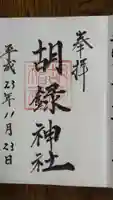 奉拝
胡録神社
平成23年11月23日